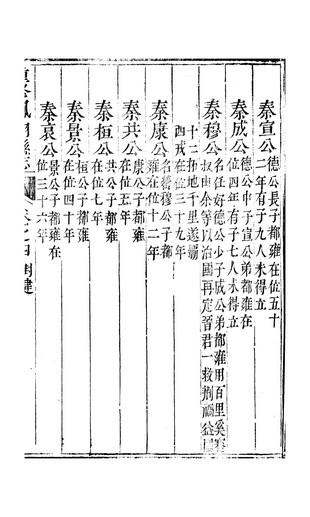 秦宣公德公長子都雍在位五十
二年有子九人未得立
秦成公德公中子宣公弟都雍在
位四年有子七人未得立
秦穆公名任好德公少子成公弟都雍用百里奚
叔由余等以治國再定晉君一救荆禍益國
十二拓地千里遂霸
西戎在位三十九年
秦康公名罃穆公子都
雍在位十二年
秦共公康公子都雍
在位五年
秦桓公共公子都雍
在位七年
秦景公桓公子都雍
在位四十年
秦哀公景公子都雍在
位三十六年